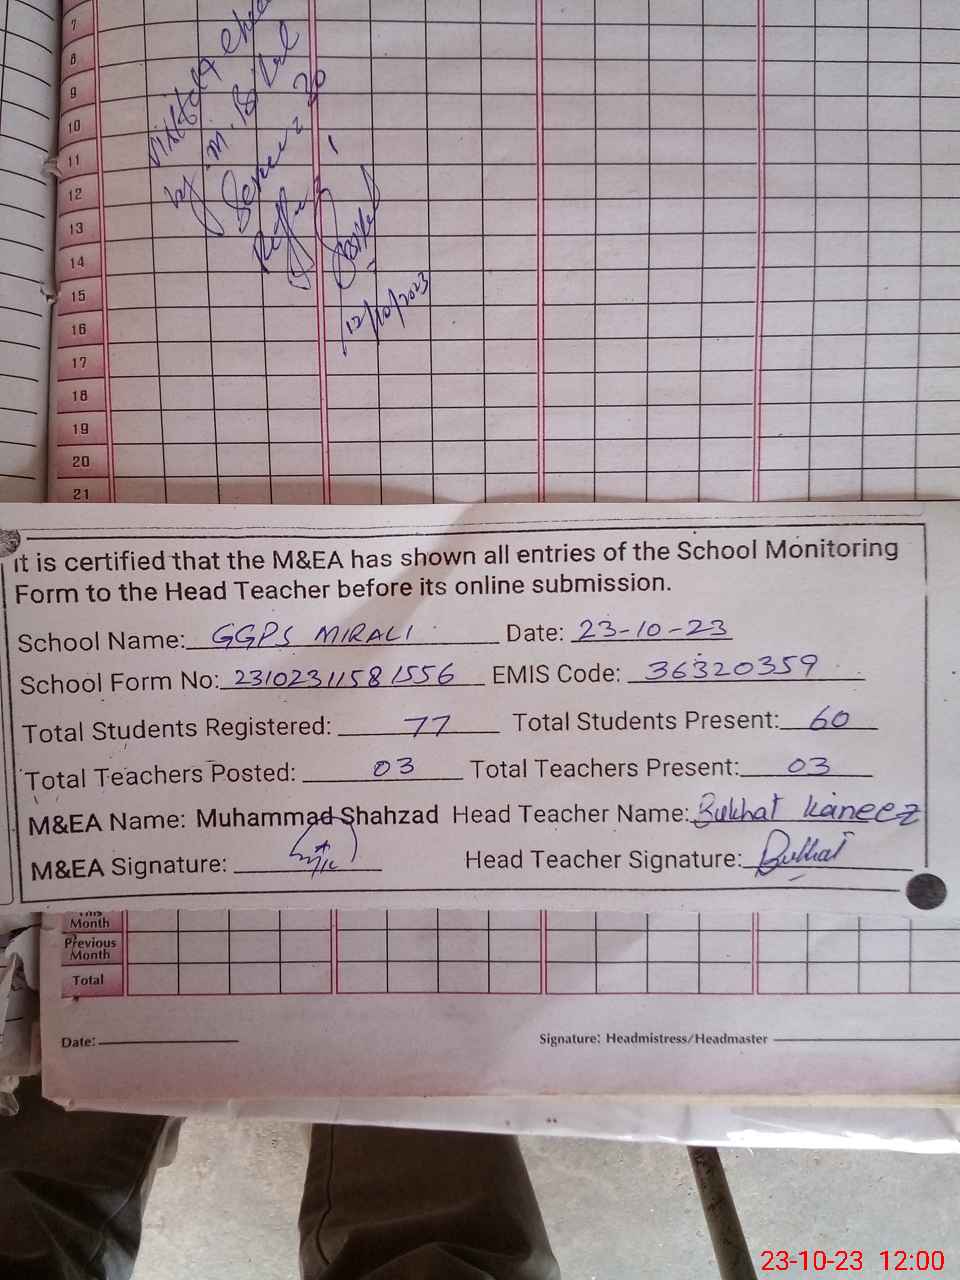 7
8
9
10
11
12
13
14
15
16
17
18
19
20
21
by M. Bilal
12/10/2023
It is certified that the M&EA has shown all entries of the School Monitoring
Form to the Head Teacher before its online submission.
School Name: GGPS MIRALI Date: 23-10-23
School Form No: 23102311581556 EMIS Code: 36320359
Total Students Registered: 77 Total Students Present: 60
Total Teachers Posted: 03 Total Teachers Present: 03
M&EA Name: Muhammad Shahzad Head Teacher Name: Bukhat Kaneez
M&EA Signature: Head Teacher Signature: Bukhat
This Month
Previous Month
Total
Date: Signature: Headmistress/Headmaster
23-10-23 12:00